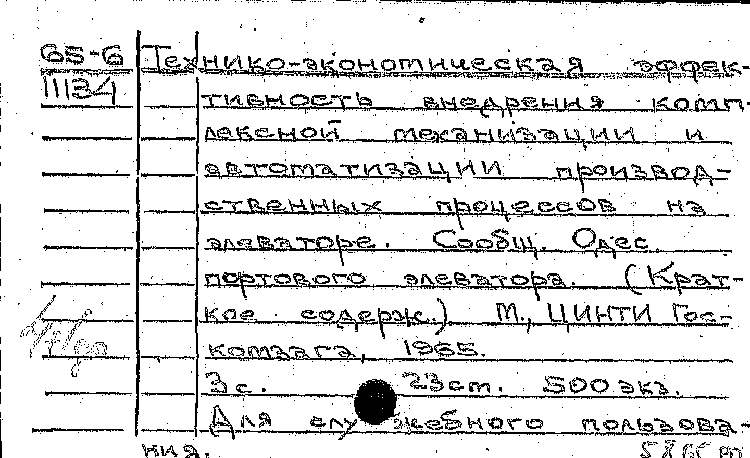 65-6 Технико-экономическая эффек-
11134 тивность внедрения комп-
лексной механизации и
автоматизации производ-
ственных процессов на
элеваторе. Сообщ. Одес.
портового элеватора. (Крат-
кое содерж.) М., ЦИНТИ Гос-
комзага, 1965.
3 с. 23 см. 500 экз.
Для служебного пользова-
ния.